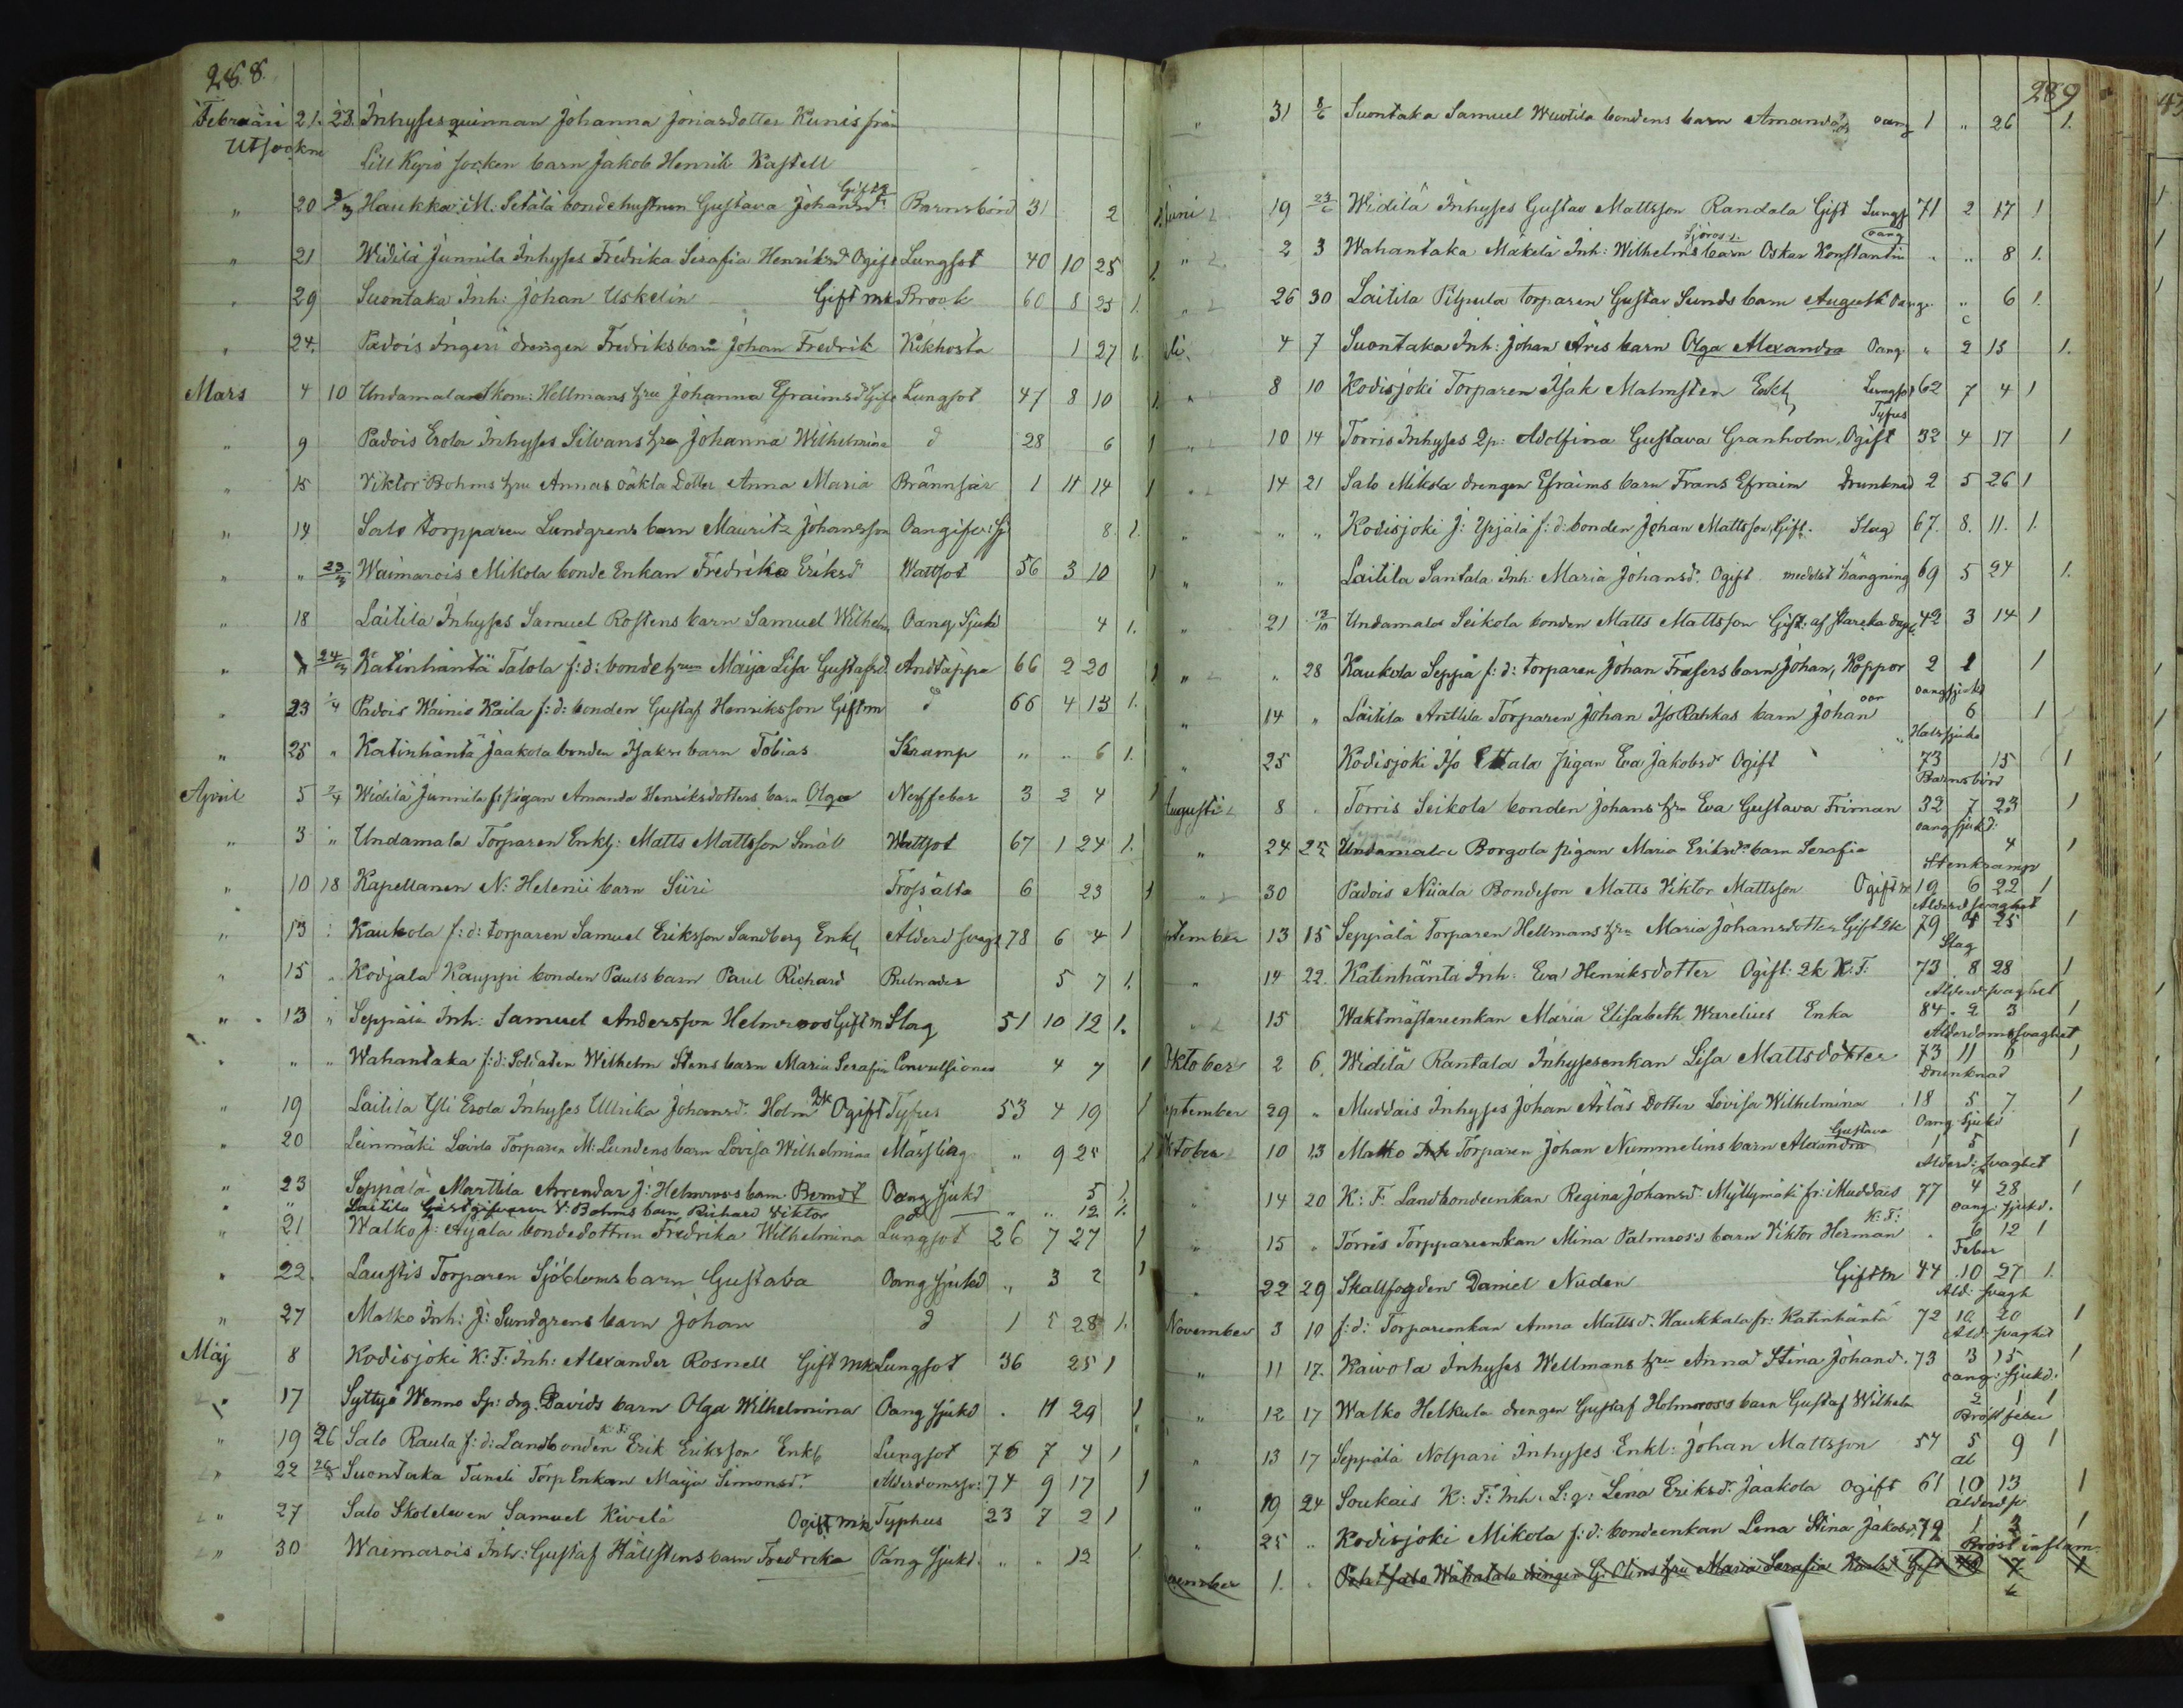 288.
Februari 21. 23. Inhyses quinnan Johanna Jonasdotter Kunis från
Utsockne Lill Kyro socken barn Jakob Henrik Kastell
" 20 2/3 Haukka: M: Setälä bondehustrun Gustava Johansdr Gift Barnsbörd 31 2
" 21 Widilä Junnila Inhyses Fredrika Serafia Henriksdr Ogift Lungsot 40 10 25 1
" 29 Suontaka Inh: Johan Uskelin Gift mk Brock 60 8 23 1.
" 24. Padois Ingeri drengen Fredriks barn Johan Fredrik Kikhosta 1 27 1.
Mars 4 10 Undamala Skom: Hellmans hru Johanna Efraimsd Gift Lungsot 47 8 10 1
" 9 Padois Erola Inhyses Silvans hru Johanna Wilhelmina d 28 6 1
" 15 Viktor Bohms hru Annas oäkta Dotter Anna Maria Brännsår 1 11 14 1
" 14 Salo torpparen Lundgrens barn Mauritz Johansson Oangifv: Sj 8. 1.
" " 23/3 Waimarois Mikola bonde Enkan Fredrika Eriksdr Wattsot 56 3 10 1
" 18 Laitila Inhyses Samuel Rostens barn Samuel Wilhelm Oang Sjukd 4 1.
" " 24/3 Katinhäntä Talola f: d: bonde hrun Maija Lisa Gustafsd. Andtäppa 66 2 20 1
" 23 1/4 Padois Wainio Kaila f: d: bonden Gustaf Henriksson Gift m d 66 4 13 1.
" 25 " Katinhäntä Jaakola bonden Isaks barn Tobias Kramp " .. 6 1.
April 5 2/4 Widilä Junnila f: pigan Amanda Henriksdotters barn Olga Nerffeber 3 2 4 1
" 3 " Undamala Torparen Enkl: Matts Mattsson Småll Wattsot 67 1 24 1.
" 10 18 Kapellanen N: Helenii barn Siiri Trosssålta 6 23 1
" 13 : Kaukola f: d: torparen Samuel Eriksson Sandberg Enkl Ålderd svagh 78 6 4 1
" 15 " Kodjala Kauppi bonden Pauls barn Paul Richard Bulnader 5 7 1.
" 13 " Seppälä Inh: Samuel Andersson Helmroos Gift m Slag 51 10 12 1.
" " " Wahantaka f: d: Soldaten Wilhelm Stens barn Maria Serafia Convulsioner 4 7 1
" 19 Laitila Yli Erola Inhyses Ullrika Johansdr Holm 2k Ogift Tyfus 53 4 19 1
" 20 Leinmäki Torparen M: Lundens barn Lovisa Wilhelmina Mässling " 9 25 1
" 23 Seppälä Marttila Arrendar J: Helmroos barn Berndt Oang sjukd 5 1.
" " Laitila Gästgifvaren V: Bohms barn Richard Viktor d " .. 12 1.
" 21 Walko J: Äijälä bondedottren Fredrika Wilhelmina Lungsot 26 7 27 1
" 22. Laustis Torparen Sjöbloms barn Gustava Oang sjukd " 3 2 1
" 27 Malko Inh: J: Sundgrens barn Johan d 1 5 28 1.
Maj 8 Kodisjoki K: F: Inh: Alexander Rosnell Gift mk Lungsot 36 25 1
" 17 Syttyä Wenno Sp: drg. Davids barn Olga Wilhelmina Oang Sjukd . 11 29 1
" 19 26 Salo Raula f: d: Landbonden K: F: Erik Eriksson Enkl Lungsot 76 7 4 1
" 22 26/5 Suontaka Taneli Torp Enkan Maija Simonsdr Ålderdomssv: 74 9 17 1
" 27 Salo Skoleleven Samuel Kivelä Ogift mk Typhus 23 7 2 1
" 30 Waimarois Inh: Gustaf Hällstens barn Fredrika Oang Sjukd. " " 12 1
289
" 31 2/6 Suontaka Samuel Wuotila bondens barn Amanda oang 1 " 26 1.
Juni 19 24/6 Widilä Inhyses Gustav Mattsson Randala Gift Lungs 71 2 17 1
" 2 3 Wahantaka Mäkelä Inh: Wilhelm Sjöroos barn Oskar Konstantin oang " .. 8 1.
" 26 30 Laitila Pilpula torparen Gustav Sunds barn August Oang " 6 1.
li 4 7 Suontaka Inh: Johan Åris barn Olga Alexandra Oang " 2 15 1.
" 8 10 Kodisjoki Torparen Isak Malmsten Enkl Lungsot 62 7 4 1
" 10 14 Torris Inhyses Qp: Adolfina Gustava Granholm, Ogift Tyfus 32 4 17 1
" 14 21 Salo Mikola drengen Efraims barn Frans Efraim Drunknad 2 5 26 1
" " " Kodisjoki J: Yrjälä f: d: bonden Johan Mattsson, Gift. Slag 67. 8. 11. 1.
" " Laitila Santala Inh: Maria Johansd. Ogift medelst hängning 69 5 24 1.
" 21 Undamala Seikola bonden Matts Mattsson Gift af starcka dryck 42 3 14 1
" " 28 Kaukola Seppä f: d: torparen Johan Frasers barn Johan, Koppor 2 1 1
" 14 " Laitila Anttila Torparen Johan Iso Rahkas barn Johan oangsjukd 6 1
" 25 Kodisjoki Iso Ettala pigan Eva Jakobsdr Ogift Halssjuka 73 15 1
Augusti 8 . Torris Seikola bonden Johans hru Eva Gustava Friman Barnsbörd 32 7 23 1
" 24 25 Undamala Borgola pigan Maria Eriksdrs barn Serafia oang sjukd: 4 1
" 30 Padois Niiala Bondeson Matts Viktor Mattsson Ogift m Stenkramp 19 6 22 1
ptember 13 15 Seppälä Torparen Hellmans hru Maria Johansdotter Gift 2k Ålderd svaghet 79 4 25 1
" 14 22. Katinhäntä Inh: Eva Henriksdotter Ogift: 2k K: F: Slag 73 8 28 1
" 15 Waktmästareenkan Maria Elisabeth Warelius Enka Ålderd svaghet 84 . 2 3 1
Oktober 2 6. Widilä Rantala Inhysesenkan Lisa Mattsdotter Ålderdomssvaghet 73 11 6 1
eptember 29 " Muddais Inhyses Johan Ärläs Dotter Lovisa Wilhelmina Drunknad 18 5 7 1
Oktober 10 13 Malko Torparen Johan Nummelins barn Alexandra Gustava Oang Sjukd 1 5 1
" 14 20 K: F: Landbondeenkan Regina Johansd: Myllymäki fr: Muddais Ålderd: svaghet 77 4 28 1
" 15 " Torris Torppareenkan Mina Palmroos's barn Viktor Herman K: F: oang: sjukd. . 6 12 1
" 22 29 Skallfogden Daniel Nuden Gift m Feber 44 . 10 27 1.
November 3 10 f: d: Torpareenkan Anna Mattsd: Haukkala fr: Katinhäntä Åld: svagh 72 10 20 1
" 11 17. Kaivola Inhyses Wellmans hru Anna Stina Johansd. Åld: svaghet 73 3 15 1
" 12 17 Walko Helkula drengen Gustaf Holmroos's barn Gustaf Wilhelm oang: sjukd. 2 1 1
" 13 17 Seppälä Nolpari Inhyses Enkl: Johan Mattsson Bröstfeber 54 5 9 1
" 19 24 Soukais K: F: Inh: L: q: Lena Eriksdr. Jaakola Ogift al 61 10 13 1
" 25 " Kodisjoki Mikola f: d: bondeenkan Lena Stina Jakobsd. ålderd sv 79 1 2 1
Bröst inflam:
ecember 1. " drengen G: Olins hru Maria Serafia Karlsd: Gift 7 1